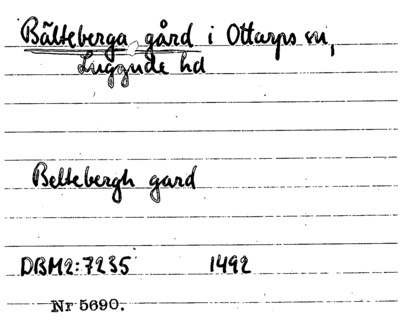 Bälteberga gård i Ottarps sn,
Luggude hd
Beltebergh gard
DBM2:7235 1492
Nr 5690.